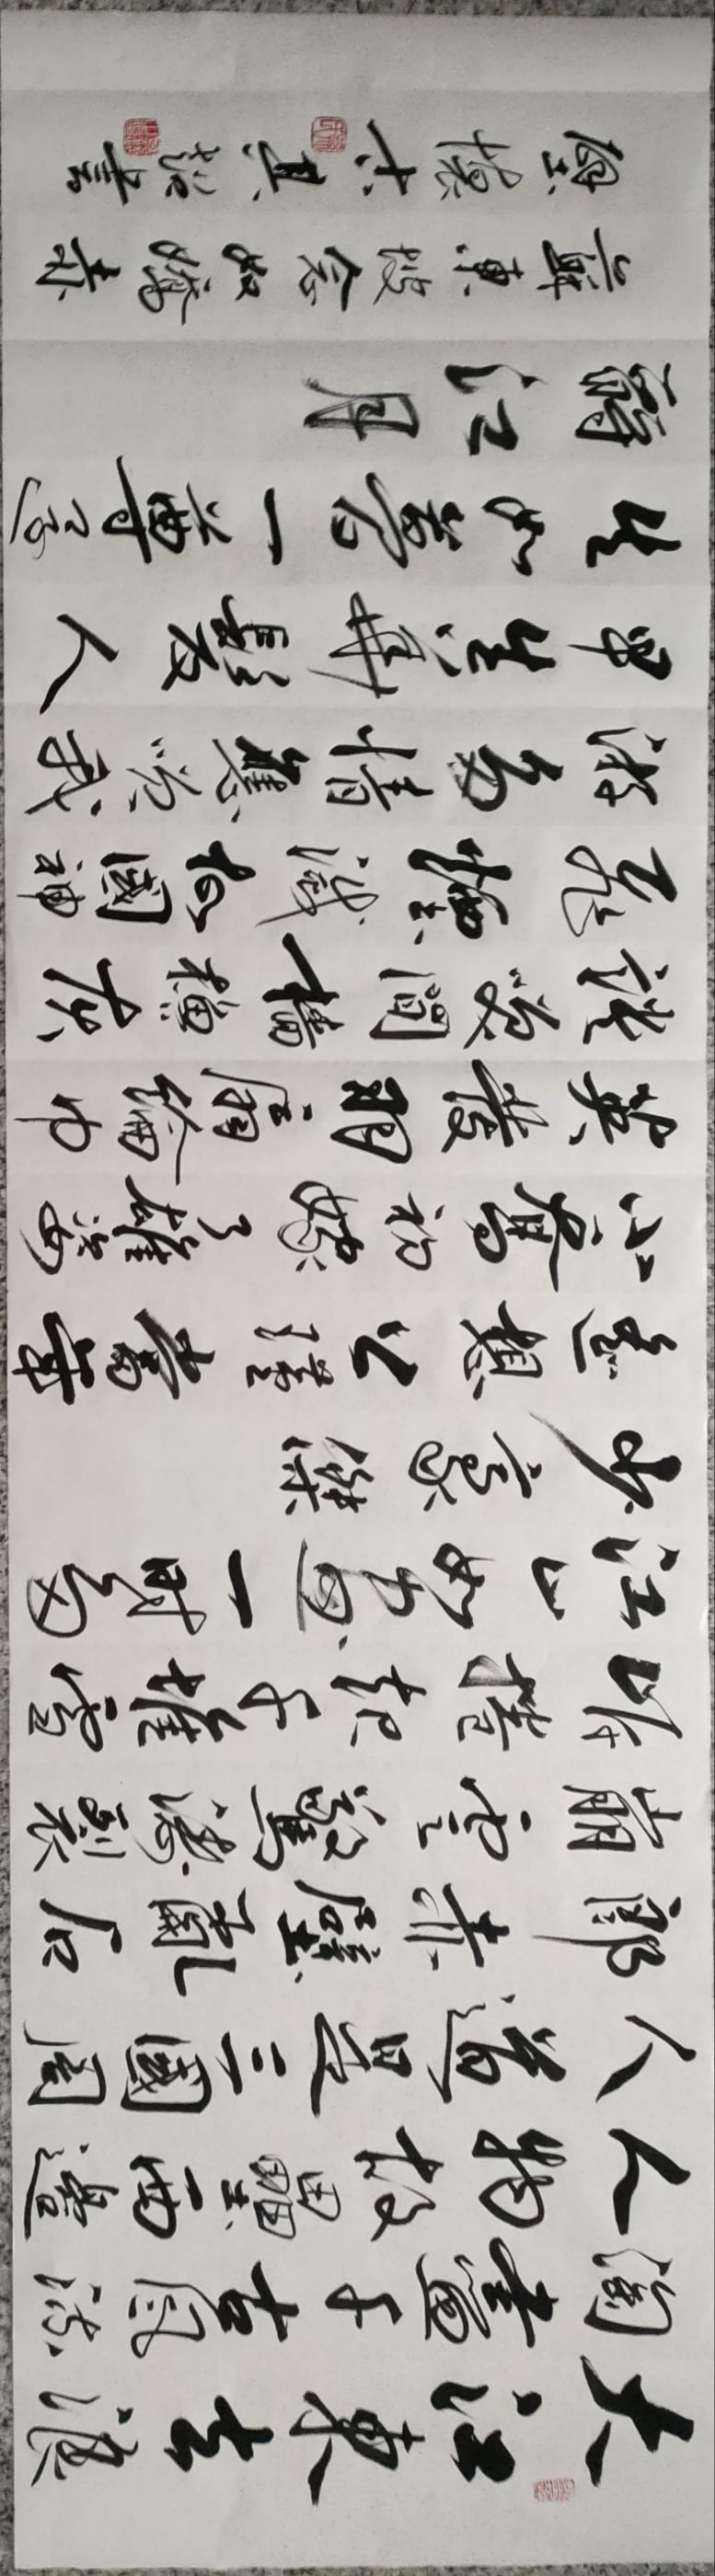 大江東去浪
淘盡千古風流
人物故壘西邊
人道是三國周
郎赤壁亂石
崩雲驚濤裂
岸捲起千堆雪
江山如畫一時多
少豪傑
遙想公瑾當年
小喬初嫁了雄姿
英發羽扇綸巾
談笑間檣櫓灰
飛煙滅故國神
游多情應笑我
早生華髮人
生如夢一尊還
酹江月
蘇東坡念奴嬌赤
壁懷古 書